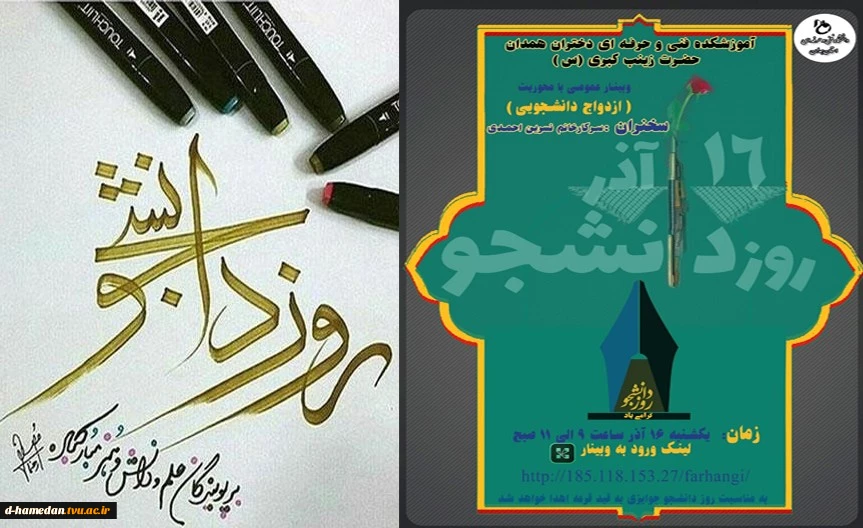 TOUCHLIIT
TOUCHLIIT
TOUCHLIIT
روز دانشجو
بر پویندگان علم و دانش و هنر مبارکباد
d-hamedan.tvu.ac.ir
آموزشکده فنی و حرفه ای دختران همدان
حضرت زینب کبری (س)
وبینار عمومی با محوریت
(ازدواج دانشجویی)
سخنران :سرکارخانم نسرین احمدی
۱۶ آذر
روز دانشجو
روز دانشجو
گرامی باد
زمان: یکشنبه ۱۶ آذر ساعت ۹ الی ۱۱ صبح
لینک ورود به وبینار
http://185.118.153.27/farhangi/
به مناسبت روز دانشجو جوایزی به قید قرعه اهدا خواهد شد